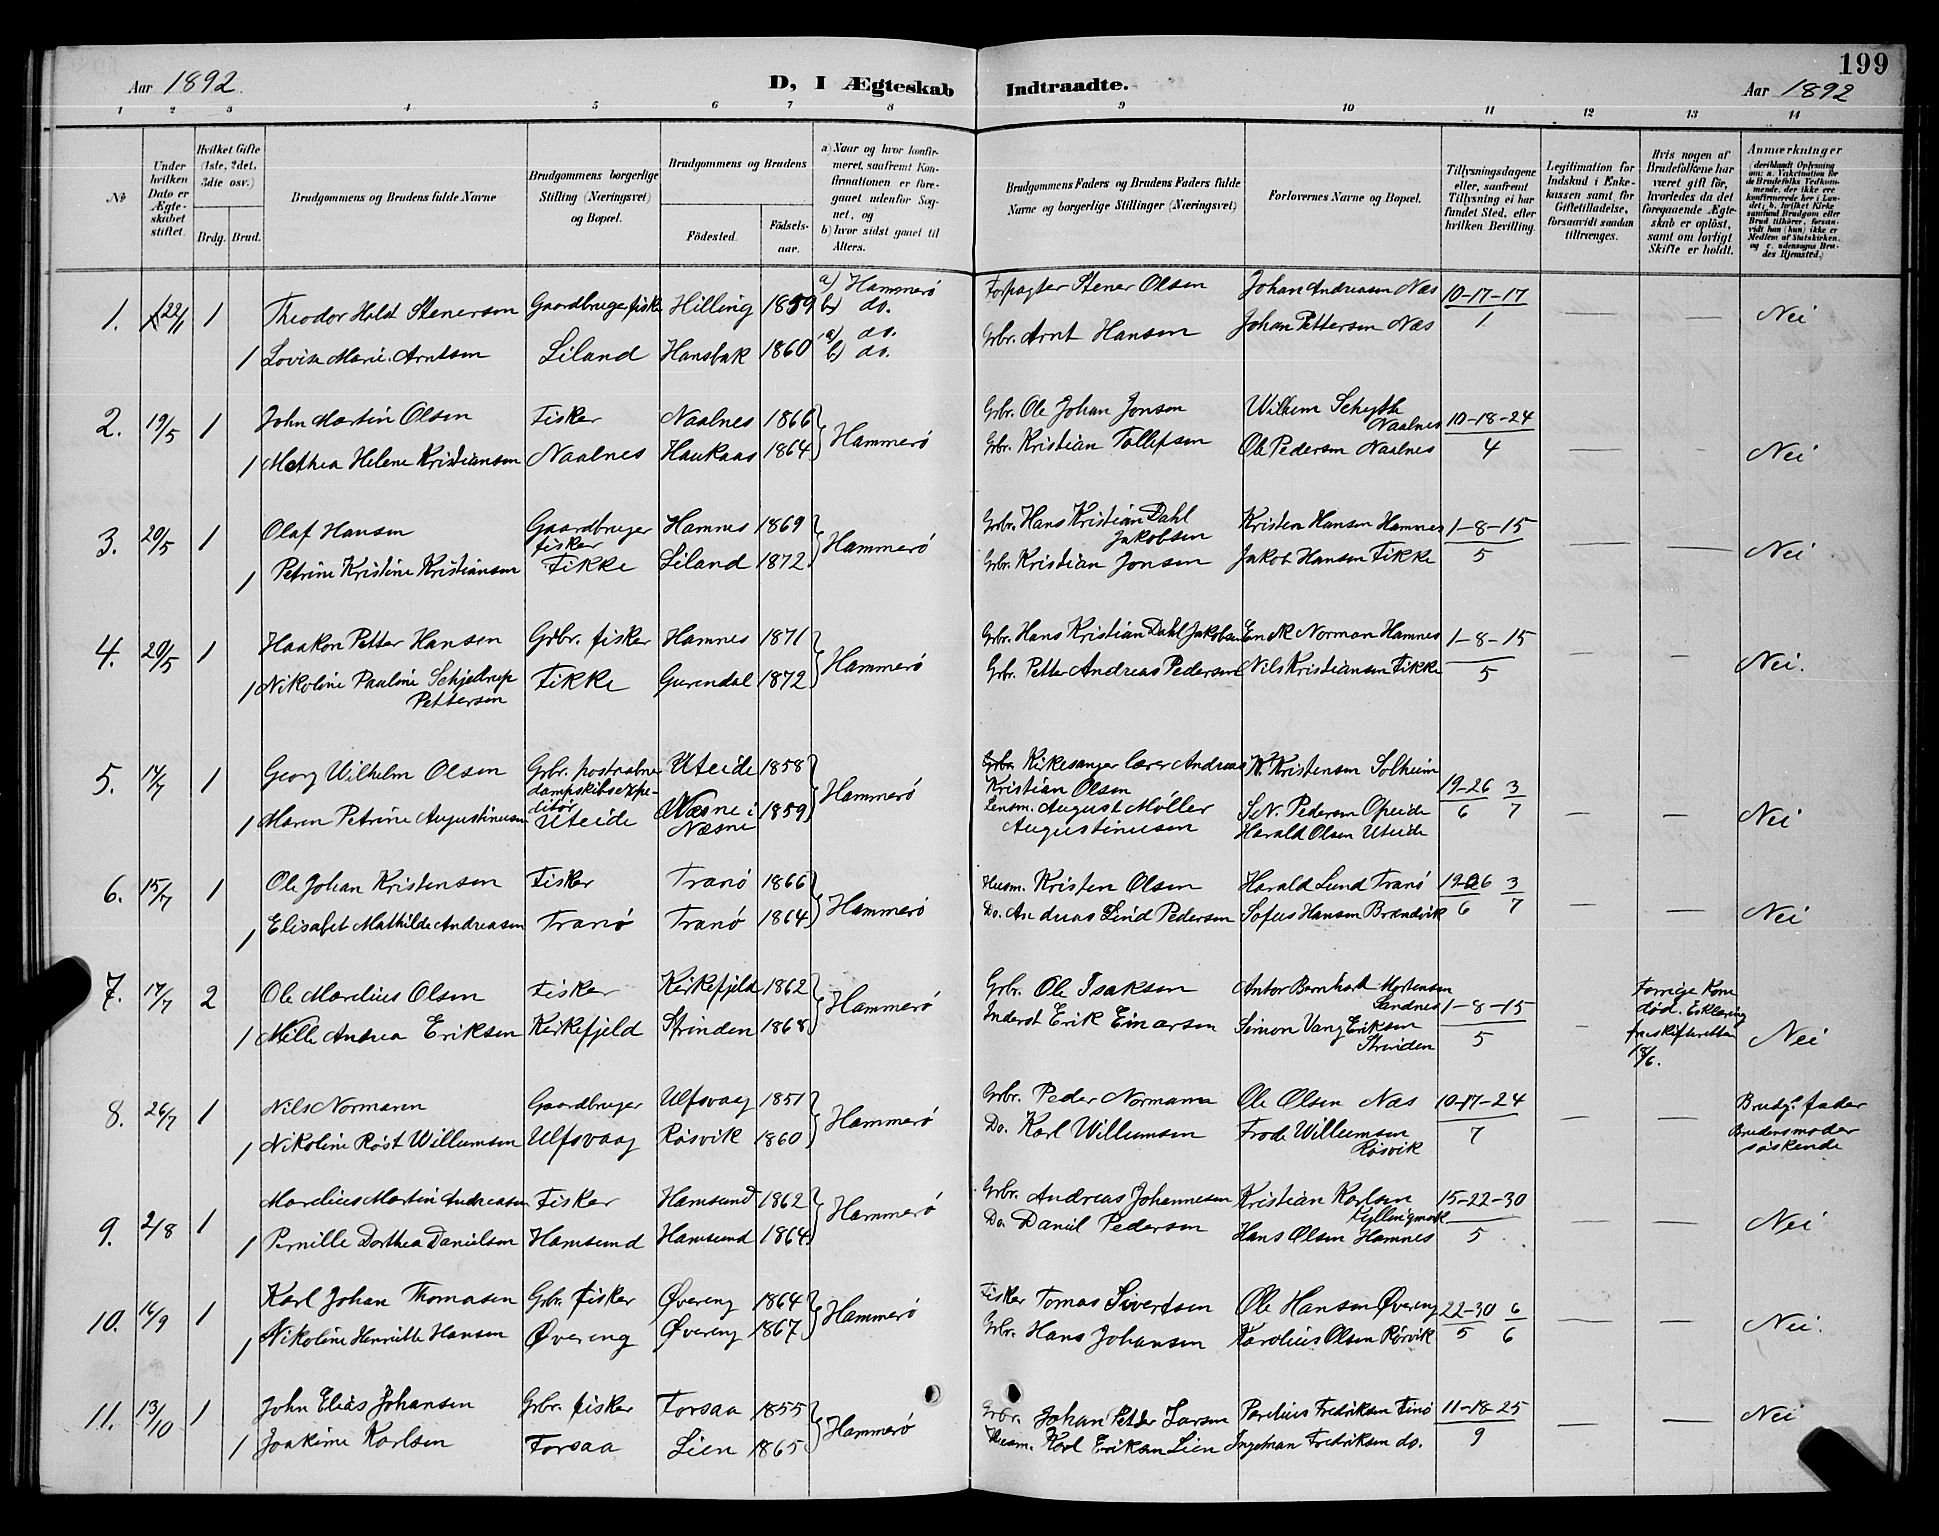 199
Aar 1892.
D, I Ægteskab Indtraadte.
Aar 1892
1 2 3 4 5 6 7 8 9 10 11 12 13 14
No
Under hvilken Dato er Ægteskabet stiftet.
Hvilket Gifte (1ste, 2det, 3die osv.)
Brdg. Brud.
Brudgommens og Brudens fulde Navne
Brudgommens borgerlige Stilling (Næringsvei) og Bopæl.
Brudgommens og Brudens
Födested. Födselsaar.
a) Naar og hvor konfirmeret, saafremt Konfirmationen er foregaaet udenfor Sognet, og
b) hvor sidst gaaet til Alters.
Brudgommens Faders og Brudens Faders fulde Navne og borgerlige Stillinger (Næringsvei)
Forlovernes Navne og Bopæl.
Tillysningsdagene eller, saafremt Tillysning ei har fundet Sted, efter hvilken Bevilling.
Legitimation for Indskud i Enkekassen samt for Giftetilladelse, forsaavidt saadan tiltrænges.
Hvis nogen af Brudefolkene har været gift för, hvorledes da det foregaaende Ægteskab er oplöst, samt om lovligt Skifte er holdt.
Anmærkninger
(deriblandt Oplysning om: a. Vakcination for de Brudefolks Vedkommende, der ikke ere konfirmerede her i Landet; b. hvilket Kirkesamfund Brudgom eller Brud tilhörer, forsaavidt han (hun) ikke er Medlem af Statskirken, og c. udensogns Brudes Hjemsted.)
1. 22/1 1 Theodor Holst Stenersen Gaardbruger fisker Hilling 1859 a) Hammerö b) do. Forpagter Stener Olsen Johan Andreasen Næs 10-17-17/1 Nei
1 Lovise Marie Arntsen Liland Hansbak 1860 a) do. b) do. Grbr. Arnt Hansen Johan Pettersen Næs
2. 19/5 1 John Martin Olsen Fisker Naalnes 1866 Hammerö Grbr. Ole Johan Jonsen Wilhem Schytth Naalnes 10-18-24/4 Nei
1 Mathea Helene Kristiansen Naalnes Haukaas 1864 Grbr. Kristian Tollefsen Ole Pedersen Naalnes
3. 20/5 1 Olaf Hansen Gaardbruger fisker Hamnes 1869 Hammerö Grbr. Hans Kristian Dahl Jakobsen Kristen Hansen Hamnes 1-8-15/5 Nei
1 Petrine Kristine Kristiansen Fikke Liland 1872 Grbr. Kristian Jonsen Jakob Hansen Fikke
4. 20/5 1 Haakon Petter Hansen Grbr. fisker Hamnes 1871 Hammerö Grbr. Hans Kristian Dahl Jakobsen Norman Hamnes 1-8-15/5 Nei.
1 Nikoline Pauline Schjeltrup Pettersen Fikke Gurendal 1872 Grbr. Petter Andreas Pedersen Nils Kristiansen Fikke
5. 14/7 1 Georg Wilhelm Olsen Grbr. postaabner dampskibsexpeditör Uteide 1858 Hammerö Kirkesanger lærer Andreas Kristian Olsen K. Kristensen Solheim 19-26/6 3/7 Nei
1 Maren Petrine Augustinusen Uteide Næsne i Næsne 1859 Lensm. August Møller Augustinusen S.N. Pedersen Opeide
Harald Olsen Uteide
6. 15/7 1 Ole Johan Kristensen Fisker Tranö 1866 Hammerö Husm. Kristen Olsen Harald Lund Tranö 19-26/6 3/7 Nei
1 Elisabet Mathilde Andreasen Tranö Tranö 1864 Do. Andreas Lind Pedersen Sofus Hansen Brændvik
7. 17/7 2 Ole Marelius Olsen Fisker Kirkefjeld 1862 Hammerö Grbr. Ole Isaksen Anton Bernhard Mortensen Sandnes 1-8-15/5 Forrige Kone död. Erklæring fra skifteretten 18/6. Nei
1 Mille Andrea Eriksen Kirkefjeld Strinden 1868 Inderst Erik Einarsen Simon Vang Eriksen Strinden
8. 26/7 1 Nils Normann Gaardbruger Ulfsvaag 1851 Hammerö Grbr. Peder Normann Ole Olsen Næs 10-17-24/7 Brudg. fader Brudens moder söskende
1 Nikoline Röst Willumsen Ulfsvaag Rösvik 1860 Do. Karl Willumsen Frode Willumsen Rösvik
9. 2/8 1 Marelius Martin Andreasen Fisker Hamsund 1862 Hammerö Grbr. Andreas Johannesen Kristian Karlsen Kyllingmark 15-22-30/5 Nei
1 Pernille Dorthea Danielsen Hamsund Hamsund 1864 Do. Daniel Pedersen Hans Olsen Hamnes
10. 16/9 1 Karl Johan Thomasen Grbr. fisker Øvereng 1864 Hammerö Fisker Tomas Sivertsen Ole Hansen Øvereng 22-30/5 6/6 Nei.
1 Nikoline Henriette Hansen Øvereng Øvereng 1867 Grbr. Hans Johansen Karolius Olsen Rörvik
11. 13/10 1 John Elias Johansen Grbr. fisker Forsaa 1855 Hammerö Grbr. Johan Petter Larsen Parelius Fredriksen Finö 11-18-25/9 Nei
1 Joakime Karlsen Forsaa Lien 1865 Husm. Karl Eriksen Lien Ingeman Fredriksen do.